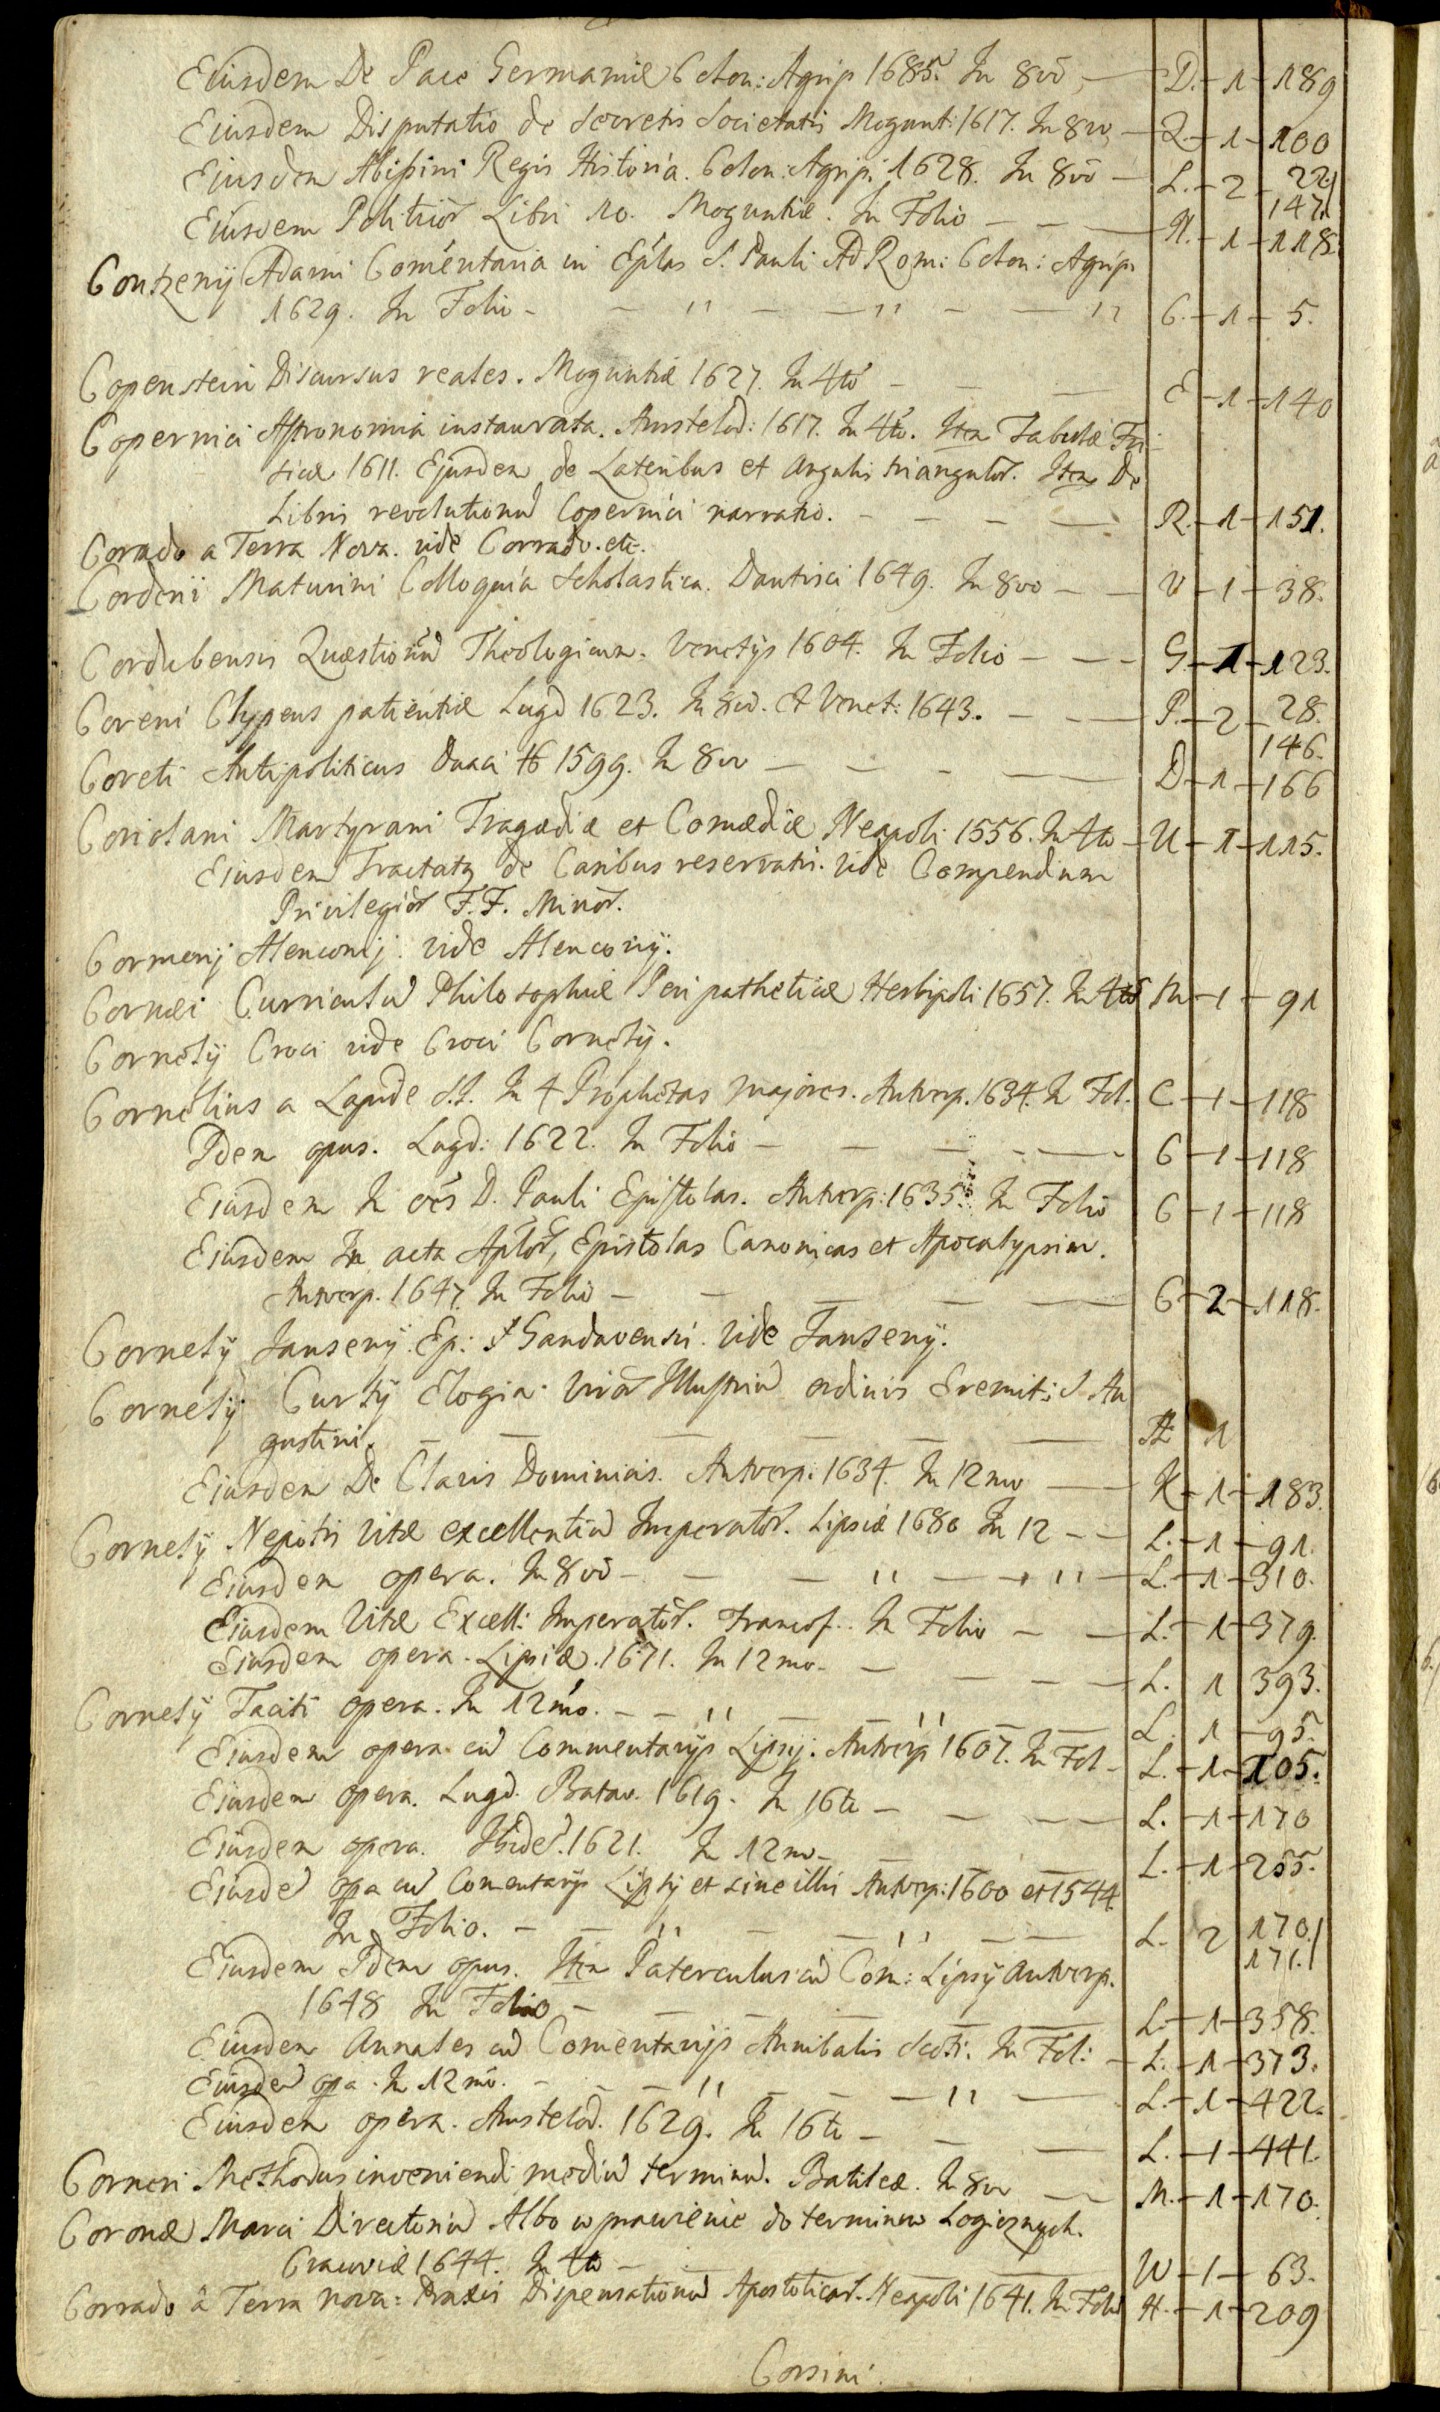 Eiusdem De Pace Germaniæ Colon: Agrip 1685. In 8vo — D. - 1 - 189
Eiusdem Disputatio de Secretis Societatis Mogunt: 1617. In 8vo — Q. - 1 - 100
Eiusdem Abißini Regis Historia. Colon: Agrip: 1628. In 8vo — L. - 2 - 22
147.
Eiusdem Politicor Libri 10. Moguntiæ. In Folio — — — H. - 1 - 118.
Contzenij Adami Comentaria in Eplas S. Pauli Ad Rom: Colon: Agrip:
1629. In Folio - — '' — — '' — — '' C. - 1 - 5.
Copenstein Discursus reales. Moguntiæ 1627. In 4to — — — E - 1 - 140
Copernici Astronomia instaurata. Amstelod: 1617. In 4to. Item Tabulæ Fri
sicæ 1611. Ejusdem de Lateribus et Angulis triangulor. Item De
Libris revolutionu Copernici narratio. — — — — R. - 1 - 151.
Corrado a Terra Nova. vide Corrado. etc.
Corderii Maturini Colloquia Scholastica. Dantisci 1649. In 8vo — — V - 1 - 38.
Cordubensis Quæstionu Theologicar. Venetijs 1604. In Folio — — — G - 1 - 123.
Coreni Clypeus patientiæ Lugd 1623. In 8vo. et Venet: 1643. — — — P. - 2 - 28.
146.
Coreti Antipoliticus Duaci 1599. In 8vo — — — — D - 1 - 166
Coriolani Martyrani Tragœdiæ et Comœdiæ Neapoli 1556. In 4to — U - 1 - 115.
Eiusdem Tractatq de Casibus reservatis. vide Compendium
Privilegior F.F. Minor.
Cormerij Alenconij. vide Alenconij.
Cornæi Curriculu Philosophiæ Peripatheticæ Herbipoli 1657. In 4to M - 1 - 91
Cornelij Croci vide Croci Cornelij.
Cornelius a Lapide S.J. In 4 Prophetas majores. Antverp. 1634. In Fol. C - 1 - 118
Idem opus. Lugd: 1622. In Folio — — — — C - 1 - 118
Eiusdem In oes D. Pauli Epistolas. Antverp: 1635. In Folio C - 1 - 118
Eiusdem In acta Aplor, Epistolas Canonicas et Apocalypsim.
Antverp. 1647. In Folio — — — — — C - 2 - 118.
Cornelij Jansenij. Ep: Gandavensis. vide Jansenij.
Cornelij Curtij Elogia Viror Illustriu ordinis Eremit: S. Au
gustini. — — — — — — 1
Eiusdem De Clavis Dominicis. Antverp: 1634. In 12mo — K - 1 - 183.
Cornelij Nepotis Vitæ excellentiu Imperator. Lipsiæ 1680 In 12 — — L. - 1 - 91.
Eiusdem opera. In 8vo — — — '' — — '' — L. - 1 - 310.
Eiusdem Vitæ Excell: Imperator. Francof.. In Folio — — L. - 1 - 379.
Eiusdem opera. Lipsiæ. 1671. In 12mo. — — — — L. 1 393.
Cornelij Taciti opera. In 12mo. — — '' — — '' — — L. 1 - 95.
Eiusdem opera cu Commentarijs Lipsij. Antverp 1607. In Fol — L. - 1 - 105.
Eiusdem opera. Lugd. Batav. 1619. In 16to — — — L. - 1 - 170
Eiusdem opera. Ibidem. 1621. In 12mo — — L. - 1 - 255.
Eiusdē opa cu Comentarijs Lipsij et sine illis Antverp: 1600 et 1544
In Folio. — — '' — — '' — — L. 2 170.
171.
Eiusdem Idem opus. Item Paterculus cu Com: Lipsij Antverp.
1648 In Folio — — — — — — L. - 1 - 358.
Eiusdem Annales cu Comentarijs Annibalis Scoti. In Fol: — L. - 1 - 373.
Eiusdē opa. In 12mo. — — — '' — — — '' — L. - 1 - 422.
Eiusdem opera. Amstelod. 1629. In 16to — — — L. - 1 - 441.
Corneri Methodus inveniendi mediu terminu. Basileæ. In 8vo — — M. - 1 - 170.
Coronæ Marci Directoriu Albo wprawienie do terminow Logicznych.
Cracoviæ 1644. In 4to — — — — W - 1 - 63.
Corrado â Terra nova: Praxis Dispensationu Apostolicar. Neapoli 1641. In Folio H. - 1 - 209
Corsini